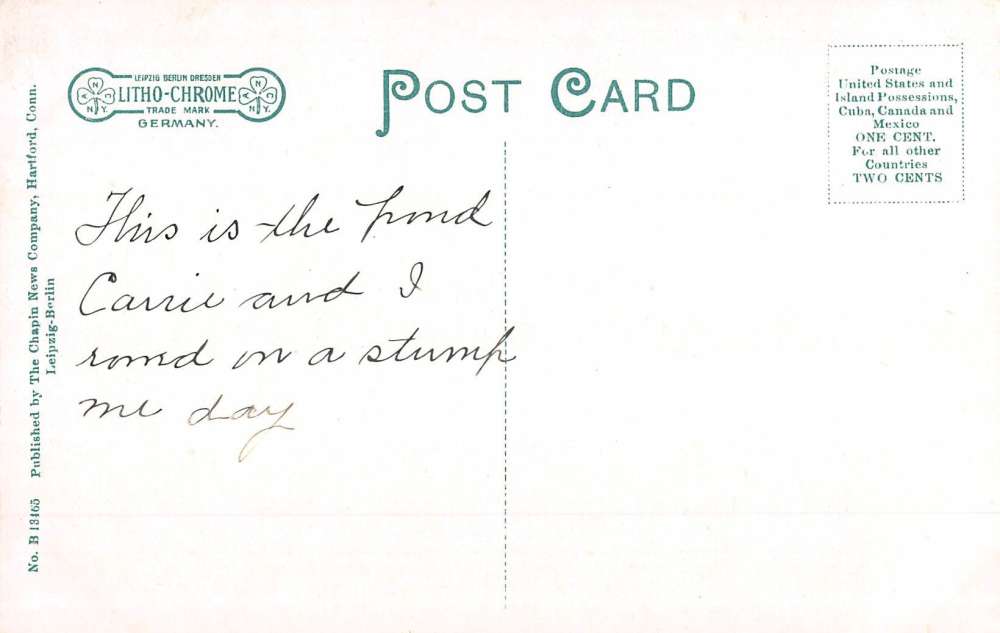 LEIPZIG BERLIN DRESDEN
LITHO-CHROME
TRADE MARK
GERMANY.
A N C N.Y.
A N C N.Y.
POST CARD
Postage
United States and
Island Possessions,
Cuba, Canada and
Mexico
ONE CENT.
For all other
Countries
TWO CENTS
This is the pond
Carrie and I
rowed on a stump
one day
No. B 13465 Published by The Chapin News Company, Hartford, Conn.
Leipzig-Berlin